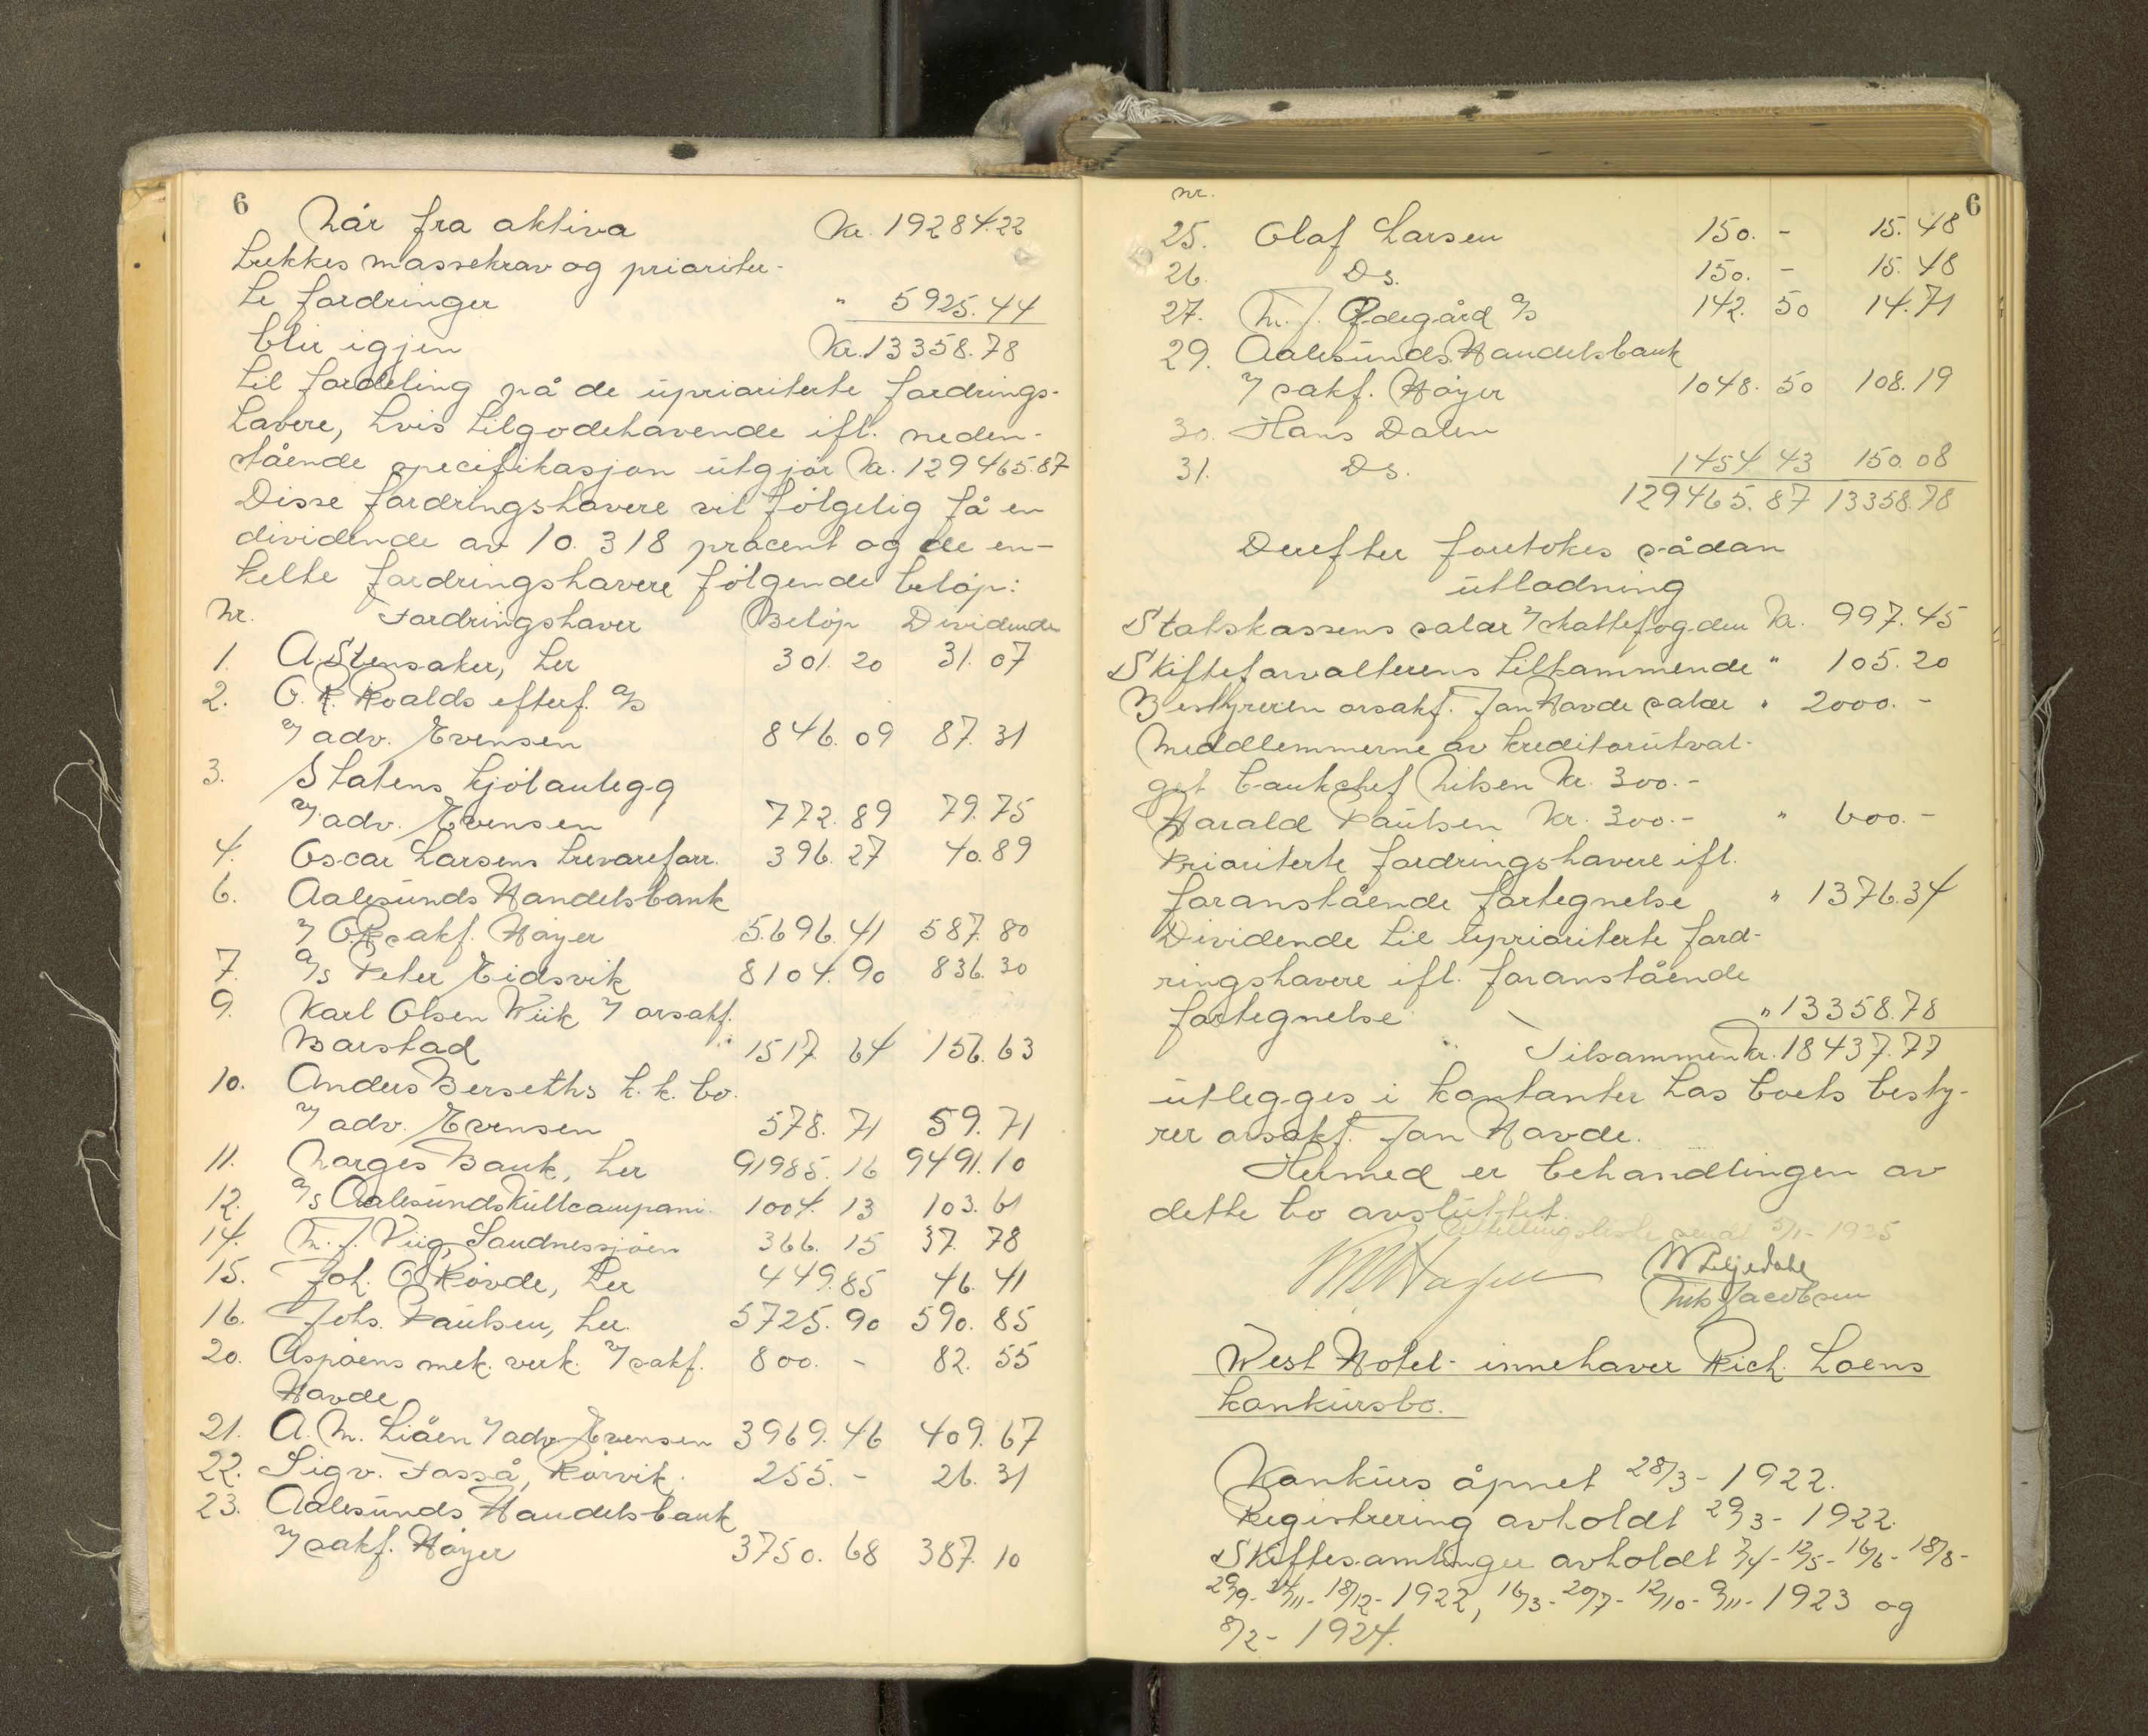 6
Når fra aktiva Kr. 19284.22
trekkes massekrav og prioriter-
te fordringer " 5925.44
blir igjen Kr. 13358.78
til fordeling på de uprioriterte fordrings-
havere, hvis tilgodehavende ifl. neden-
stående specifikasjon utgjør Kr. 129465.87
Disse fordringshavere vil følgelig få en
dividende av 10.318 procent og de en-
kelte fordringshavere følgende beløp:
Nr. Fordringshaver Beløp Dividende
1. A. Stensaker, her 301.20 31.07
2. O. R. Roalds efterf. a/s
v/ adv. Evensen 846.09 87.31
3. Statens kjølanlegg
v/ adv. Evensen 772.89 79.75
4. Oscar Larsens trevareforr. 396.27 40.89
6. Aalesunds Handelsbank
v/ O.R.sakf. Høyer 5696.41 587.80
7. a/s Peter Eidsvik 8104.90 836.30
9. Karl Olsen Wiik v/ orsakf.
Barstad 1517.64 156.63
10. Anders Berseths k.k. bo.
v/ adv. Evensen 578.71 59.71
11. Norges Bank, her 91985.16 9491.10
12. a/s Aalesunds Kullcompani 1004.13 103.61
14. M. J. Viig, Sandnessjøen 366.15 37.78
15. Joh. O. Røvde, her 449.85 46.41
16. Johs. Paulsen, her. 5725.90 590.85
20. Aspøens mek. verk. v/ sakf. 800.- 82.55
Havde
21. A. M. Liåen v/ adv. Evensen 3969.46 409.67
22. Sigv. Fosså, Rørvik. 255.- 26.31
23. Aalesunds Handelsbank
v/ sakf. Høyer 3750.68 387.10
nr. 6
25. Olaf Larsen 150.- 15.48
26. Ds. 150.- 15.48
27. M. J. Ødegård a/s 142.50 14.71
29. Aalesunds Handelsbank
v/ sakf. Høyer 1048.50 108.19
30. Hans Dalen
31. Ds. 1454.43 150.08
129465.87 13358.78
Derefter foretokes sådan
utlodning
Statskassens salær v/ skattefogden Kr. 997.45
Skifteforvalterens tilkommende " 105.20
Bestyreren orsakf. Jan Havde salær " 2000.-
Meddlemmerne av kreditorutval-
get bankchef Nilsen Kr. 300.-
Harald Paulsen Kr. 300.- " 600.-
Prioriterte fordringshavere ifl.
foranstående fortegnelse " 1376.34
Dividende til uprioriterte ford-
ringshavere ifl. foranstående
fortegnelse " 13358.78
Tilsammen Kr. 18437.77
utlegges i kontanter hos boets besty-
rer orsakf. Jan Havde.
Hermed er behandlingen av
dette bo avsluttet.
sendt 5/1-1925
W Liljedahl
Nils Jacobsen
West Hotel - innehaver Rich. Loens
konkursbo.
Konkurs åpnet 28/3-1922.
Registrering avholdt 29/3-1922.
Skiftesamlinger avholdt 7/4-12/5-16/6-18/8-
29/9-24/11-18/12-1922, 16/3-20/7-12/10-9/11-1923 og
8/2-1924.